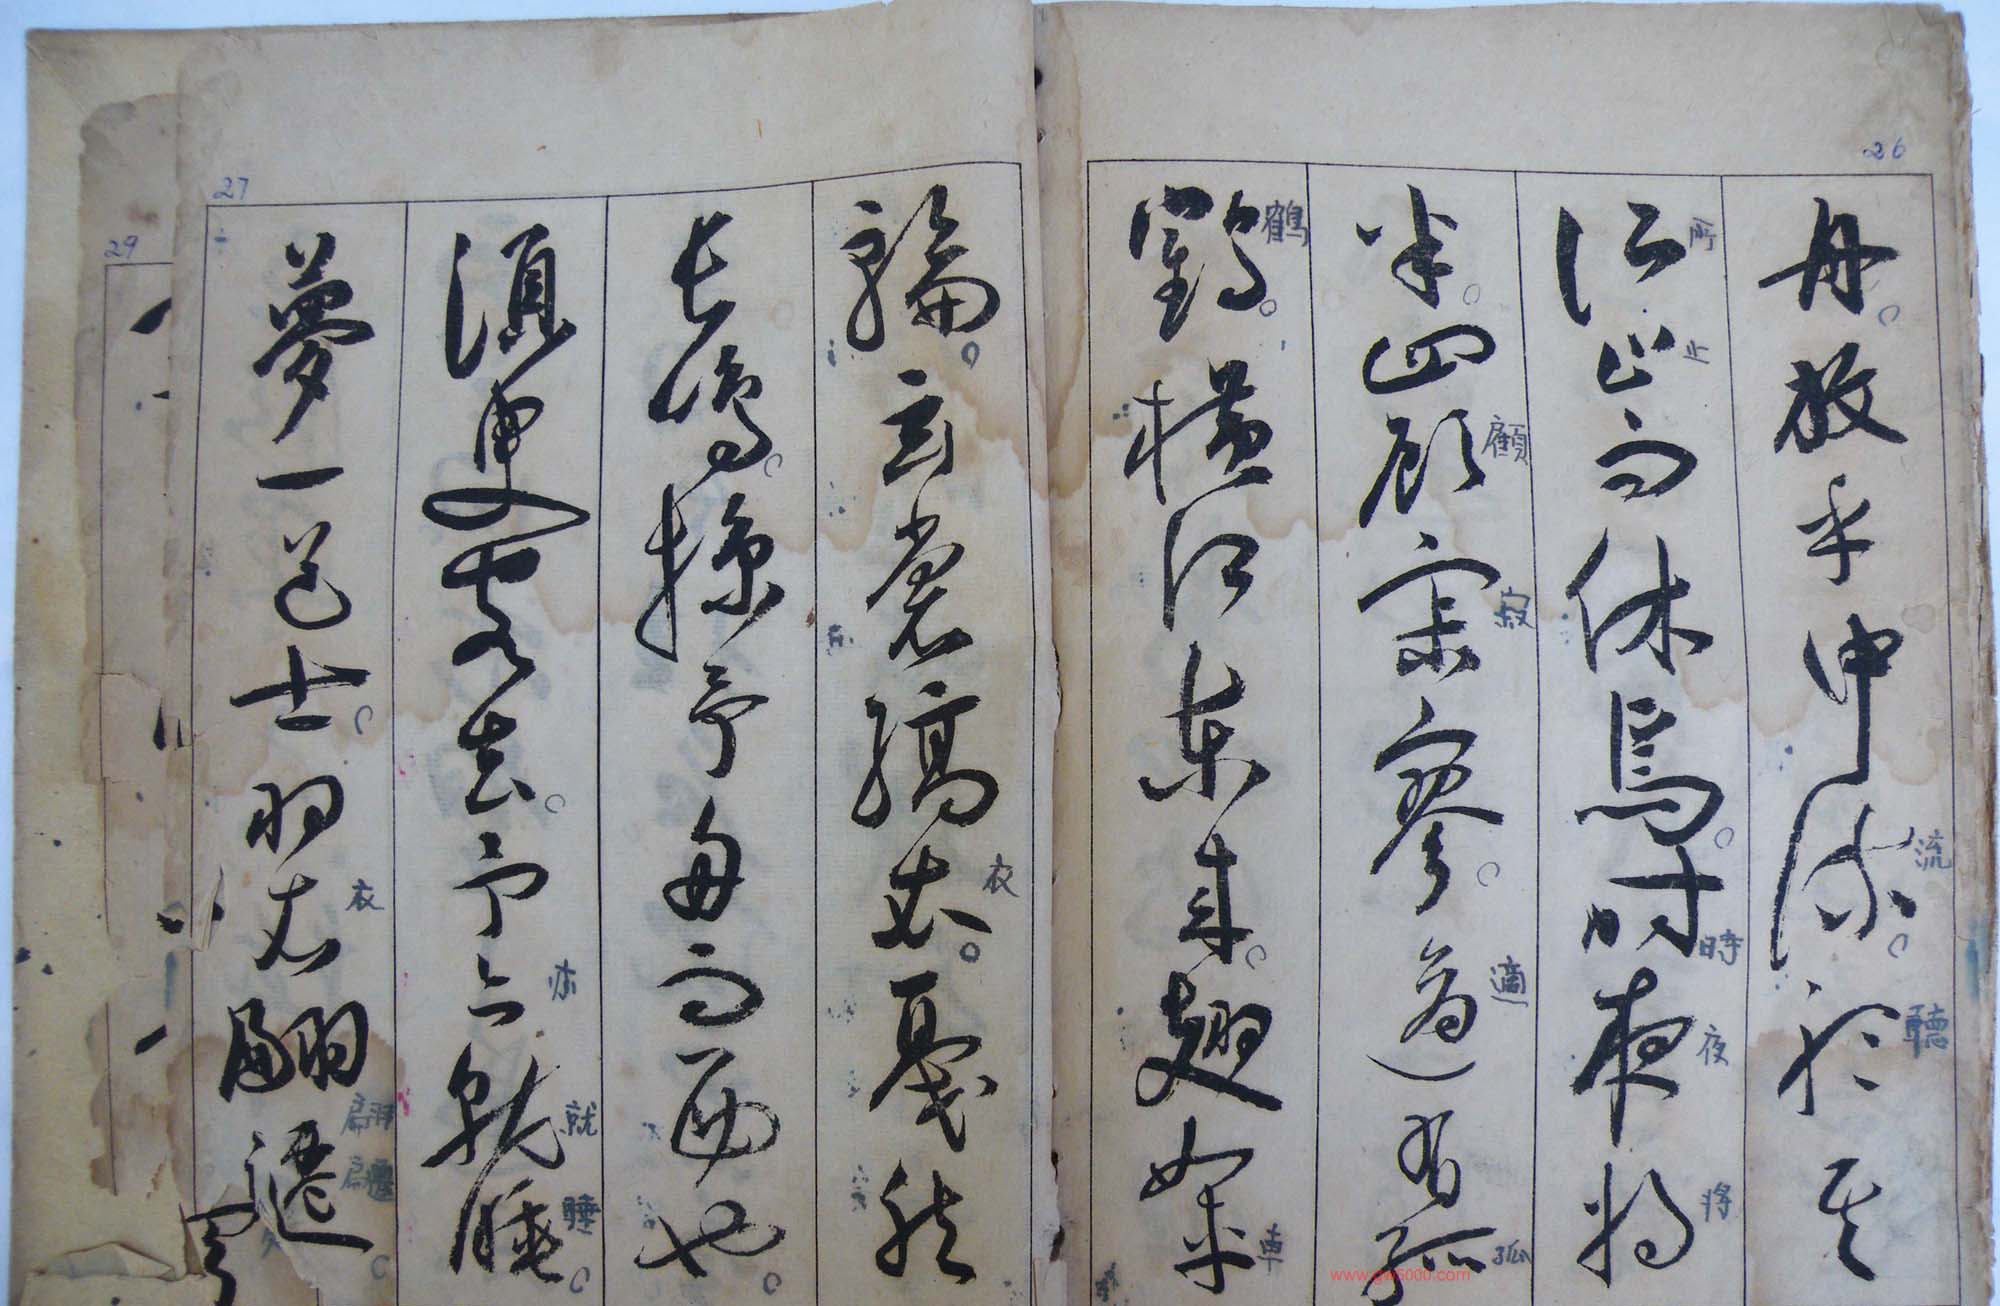 26
舟。放乎中流。聽其
流
聽
所止而休焉。時夜將
所
止
時
夜
將
半。四顧寂寥。適有孤
顧
寂
適
孤
鶴。橫江東來。翅如車
鶴
車
輪。玄裳縞衣。戛然
衣
長鳴。掠予舟而西也。
須臾客去。予亦就睡。
亦
就
睡
27
夢一道士。羽衣翩躚。
衣
翩
29